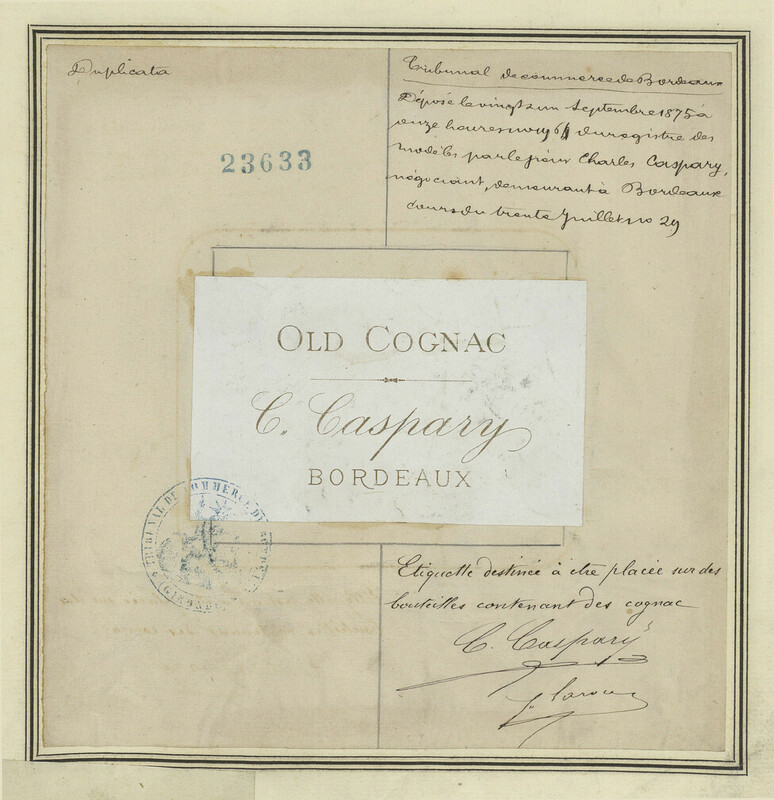 Duplicata
23633
Tribunal de commerce de Bordeaux
Déposé le vingt un Septembre 1875 à
onze heures no 1964 du registre des
modèles par le sieur Charles Caspary,
négociant, demeurant à Bordeaux
cours du trente Juillet no 29
OLD COGNAC
C. Caspary
BORDEAUX
TRIBUNAL DE COMMERCE DE
GIRONDE
Etiquette destinée à être placée sur des
bouteilles contenant des cognac
C. Caspary